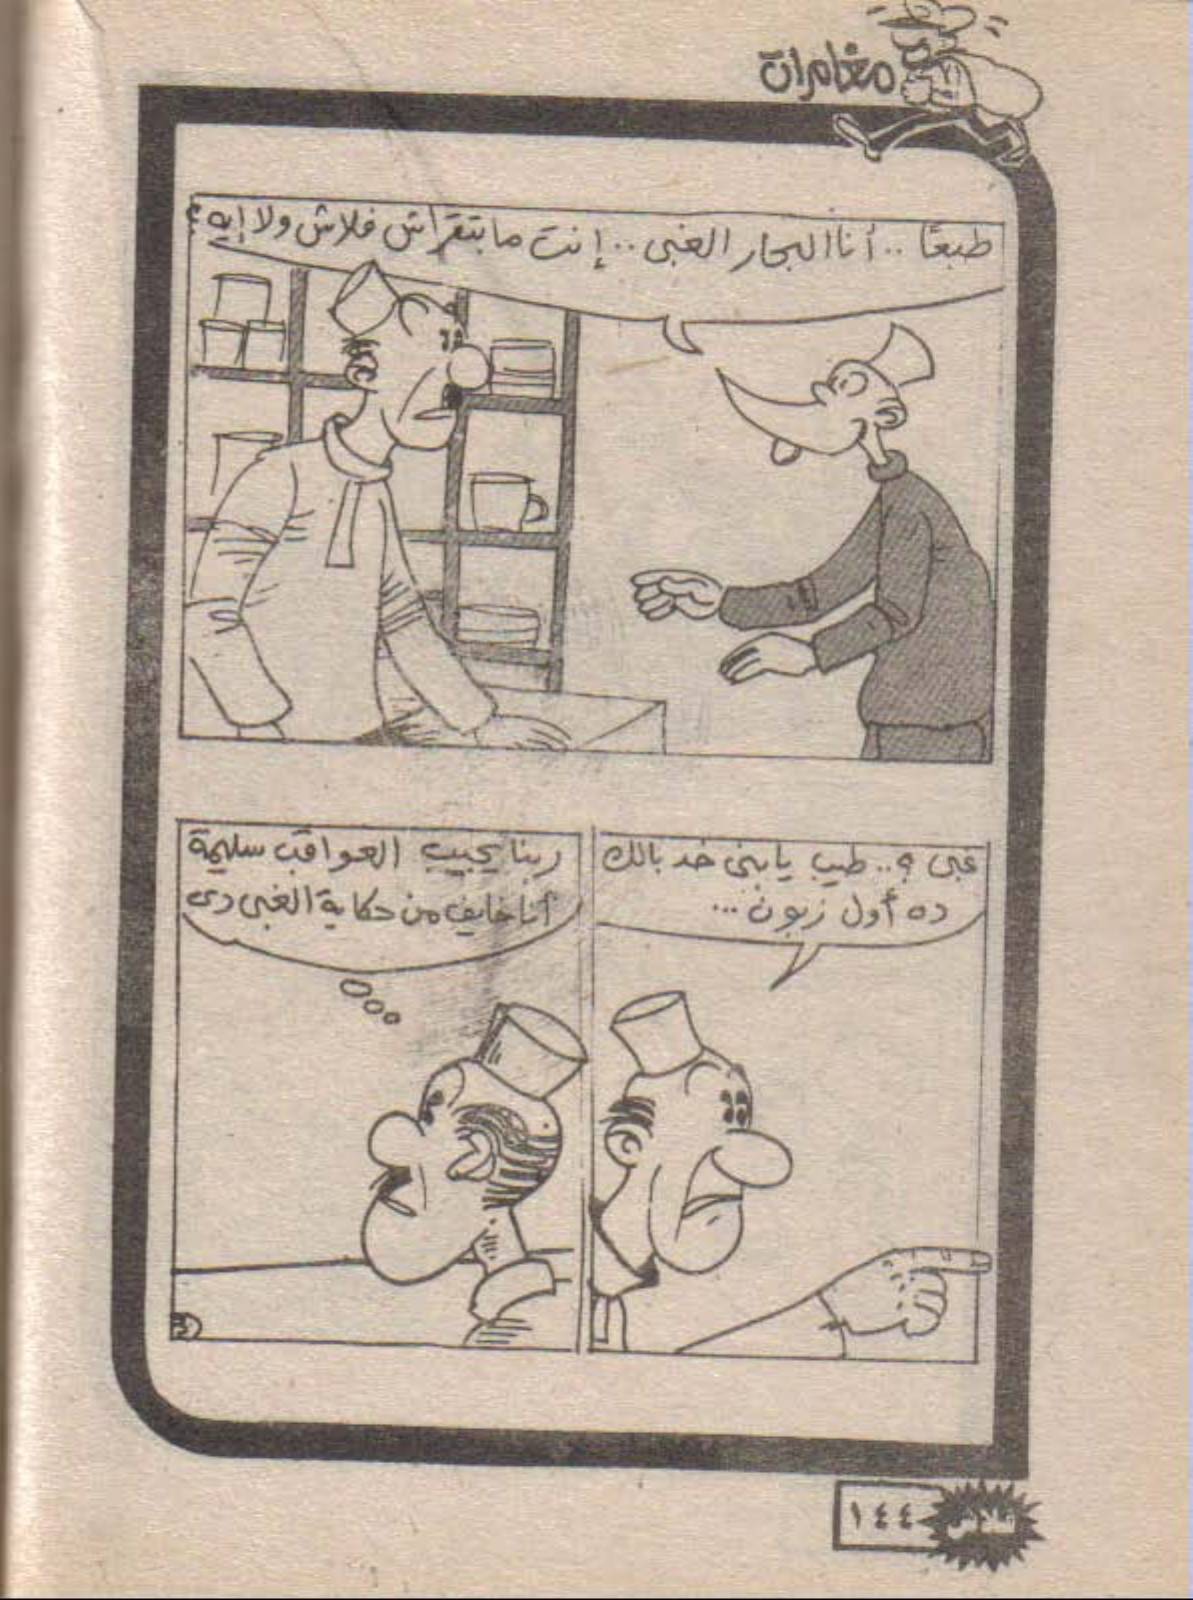 مغامرات
طبعًا .. أنا البجار الغبى .. إنت ما بتقراش فلاش ولا إيه ؟
غبى ؟ .. طيب يا بنى خد بالك
ده أول زبون ...
ربنا يجيب العواقب سليمة
أنا خايف من حكاية الغبى دى
فلاش
١٤٤